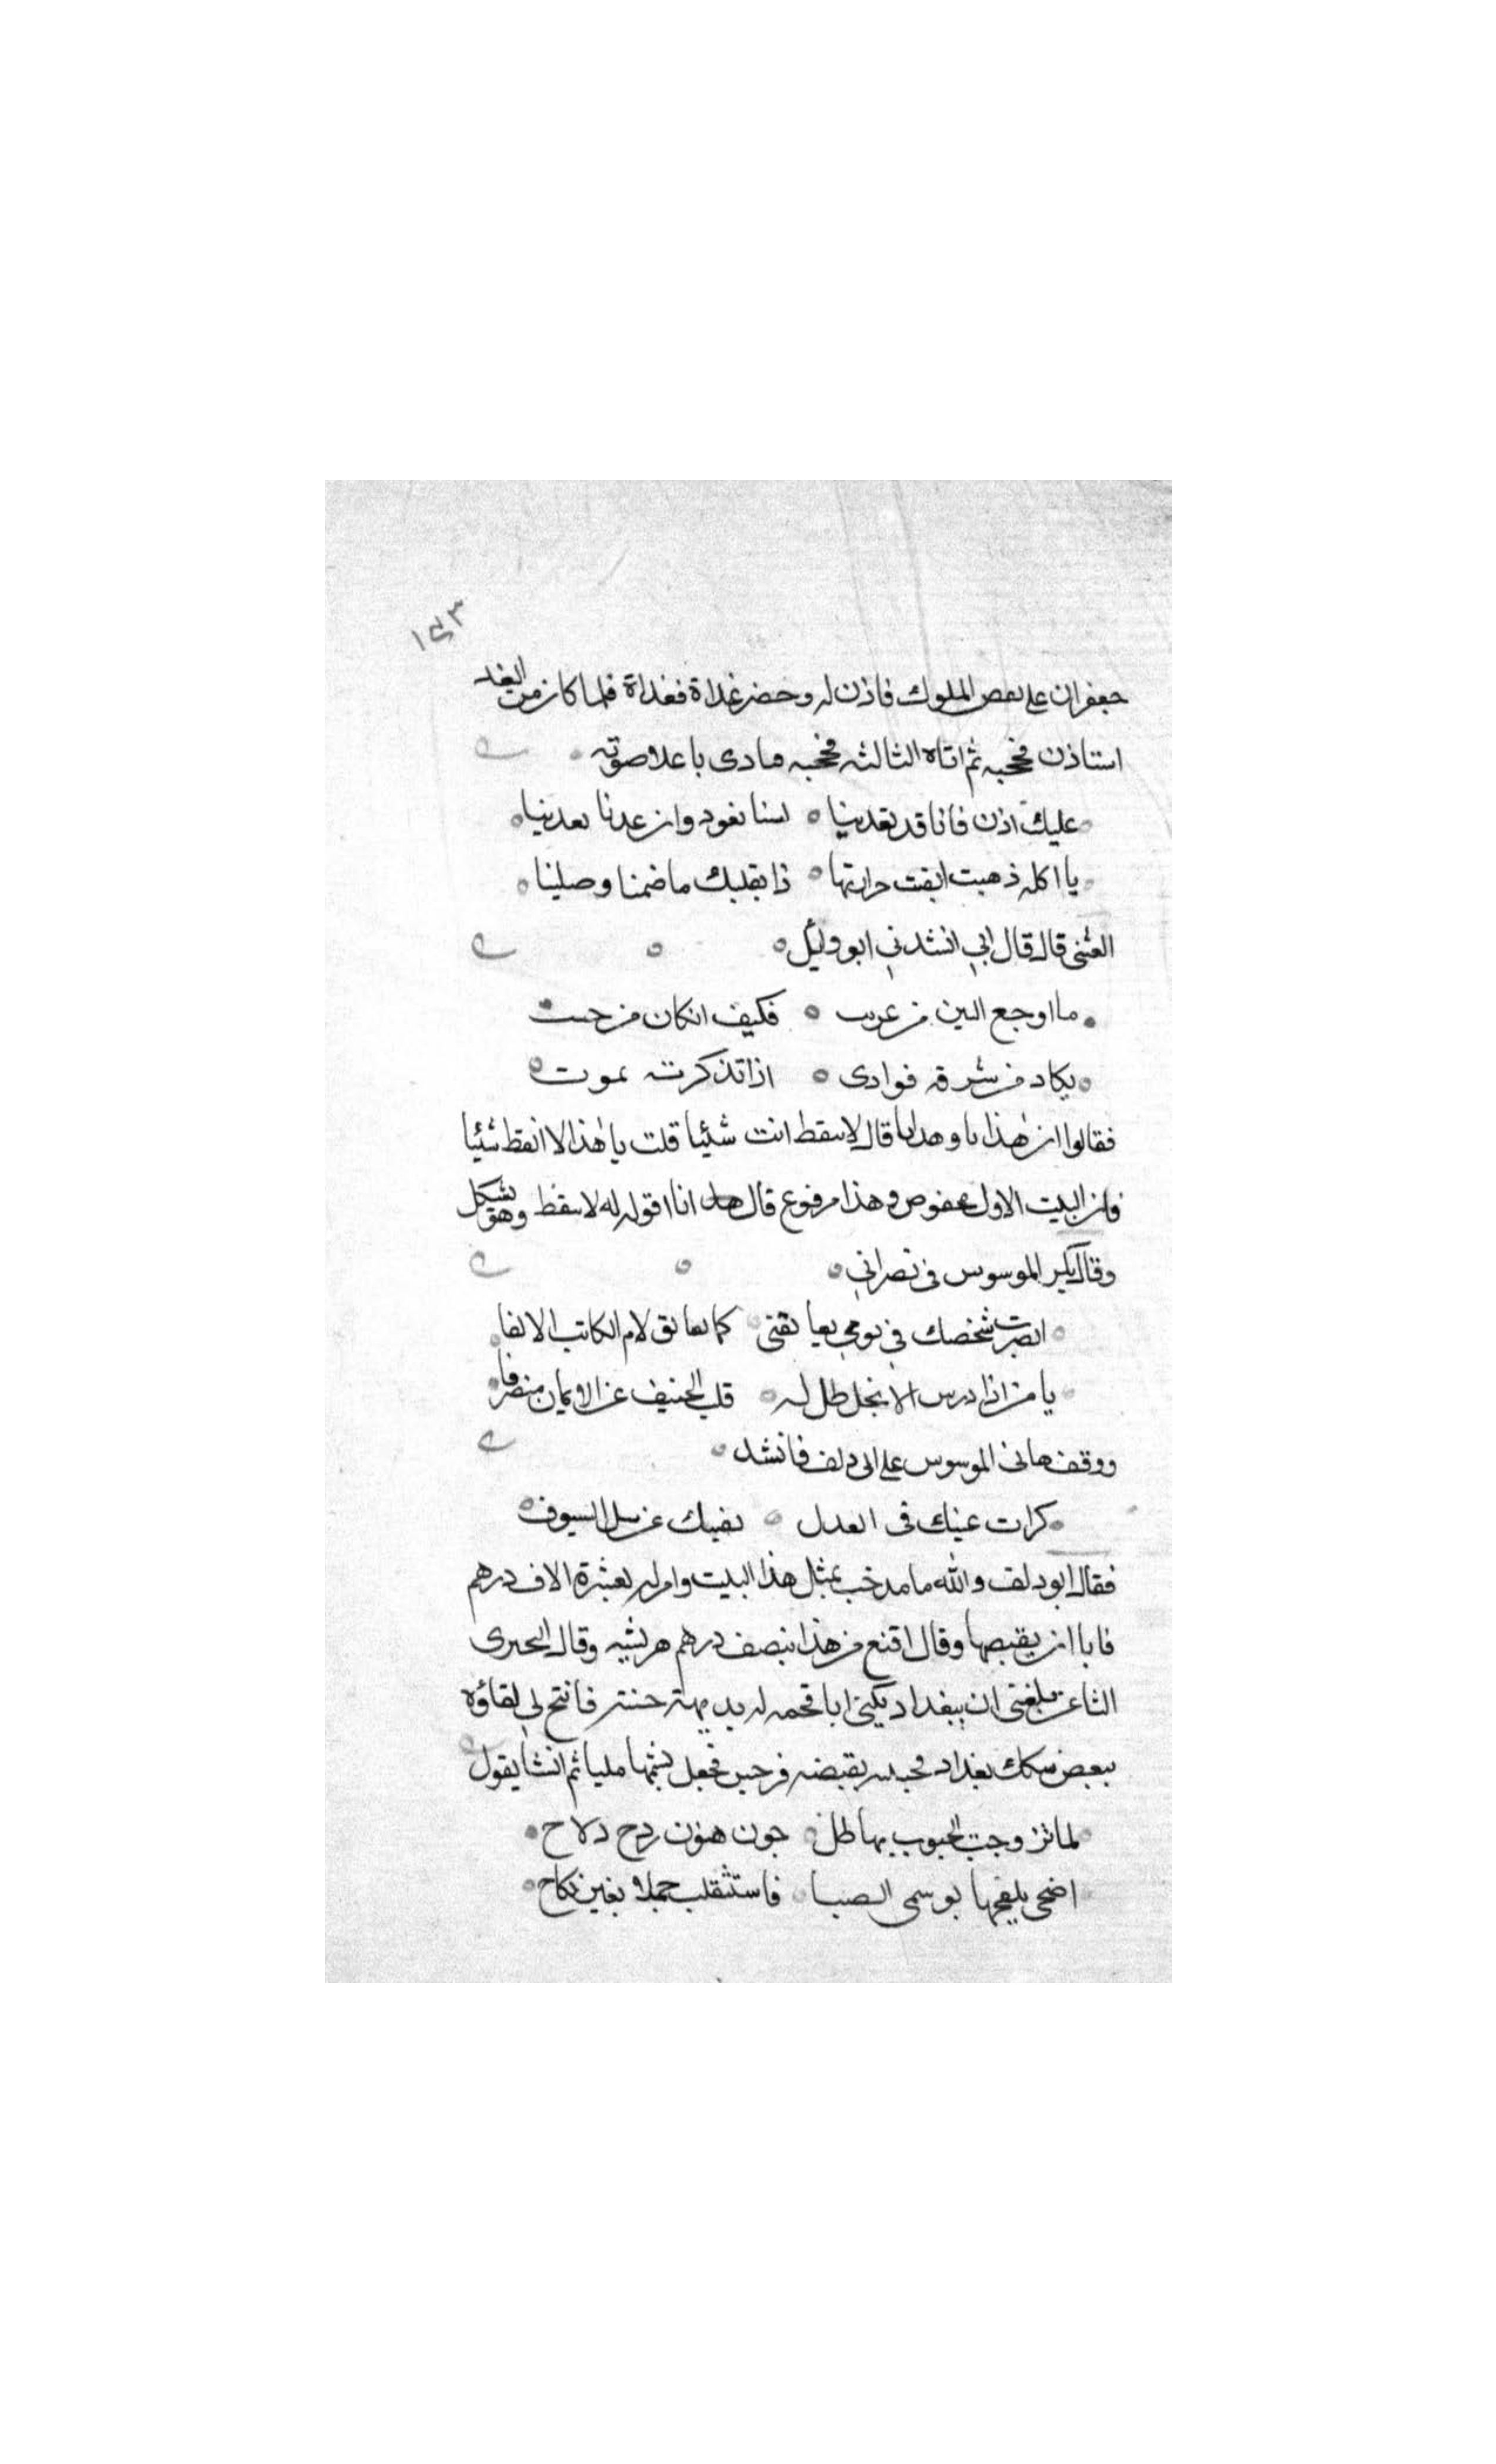 ١٤٣
جعفران على بعض الملوك فاذن له وحضر غداة فغداة فلما كان من الغد
استاذن فحجبه ثم اتاه الثالثه فحجبه فنادى باعلا صوته
عليك اذن فانا قد تغدينا ه لسنا نعود وان عدنا تعدينا ه
يا اكله ذهبت ابقت حرارتها ه ذا بقلبك ما ضمنا وصلينا ه
العتبى قال قال ابي انشدني ابو وايل ه
ما اوجع البين من غريب ه فكيف ان كان من حبيب
يكاد من شرقه فوادى ه اذا تذكرته يموت ه
فقالوا ان هذا باء وهذا تاء قال لا تنقط انت شيئا قلت يا هذا لا انقط شيئا
فان البيت الاول مخفوض وهذا مرفوع قال انا اقول له لا تنقط وهو يشكل
وقال بكير الموسوس فى نصراني ه
ابصرت شخصك في نومي يعانقنى كما يعانق لام الكاتب الالفا
يا من اذا درس الانجيل ظل له قلب الحنيف عن الايمان منصرفا
ووقف مانى الموسوس على ابى دلف فانشد
كرات عينك فى العدل ه تغنيك عن سل السيوف
فقال ابو دلف والله ما مدحت بمثل هذا البيت وامر له بعشرة الاف درهم
فابا ان يقبضها وقال اقنع من هذا بنصف درهم هريسه وقال البحترى
الشاعر بلغنى ان ببغداد يكنى ابا قحمه له بديهة حسنة فاتيح لي لقاؤه
ببعض سكك بغداد بقبضه نرجس فجعل يشمها مليا ثم انشا يقول
لما تزوجت الجنوب بهاطل جون هتون دلاح
اضحى يلقحها بوسمى الصبا فاستثقلت حملا بغير نكاح